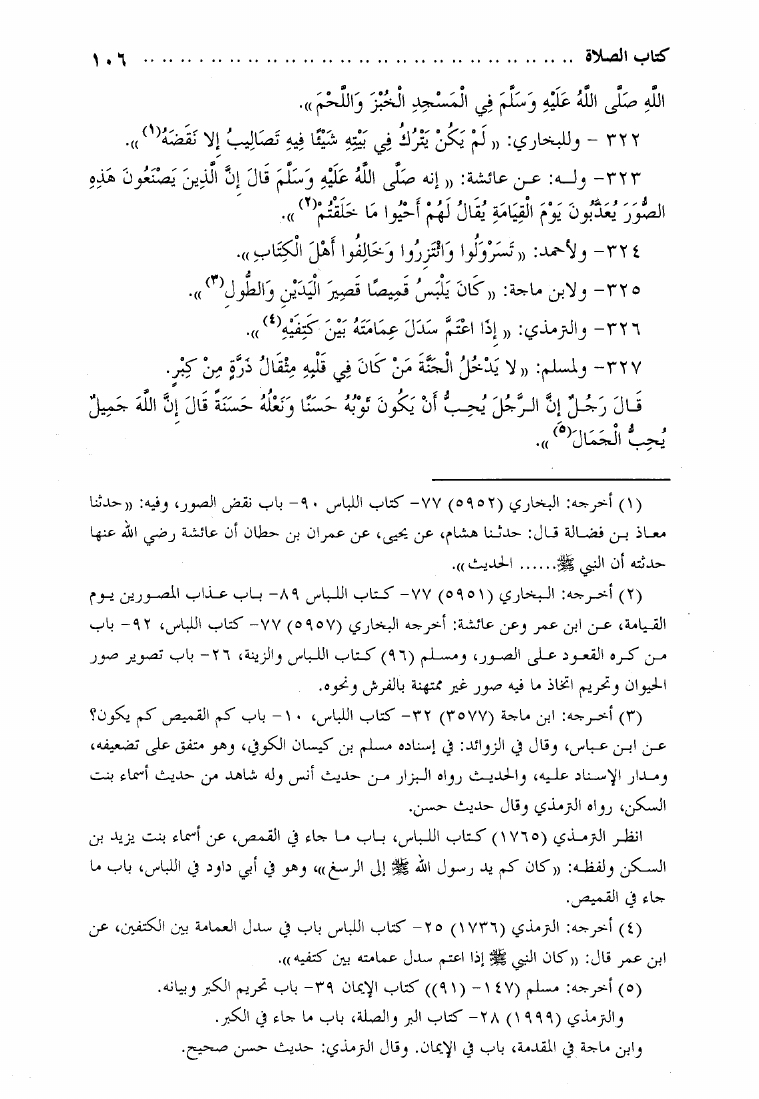 كتاب الصلاة .................................................. ١٠٦
اللهِ صَلَّى اللَّهُ عَلَيْهِ وَسَلَّمَ فِي الْمَسْجِدِ الْخُبْزَ وَاللَّحْمَ».
٣٢٢ - وللبخاري: « لَمْ يَكُنْ يَتْرُكُ فِي بَيْتِهِ شَيْئًا فِيهِ تَصَالِيبُ إِلا نَقَضَهُ(١)».
٣٢٣- ولـه: عـن عائشة: « إنه صَلَّى اللَّهُ عَلَيْهِ وَسَلَّمَ قَالَ إِنَّ الَّذِينَ يَصْنَعُونَ هَذِهِ
الصُّوَرَ يُعَذَّبُونَ يَوْمَ الْقِيَامَةِ يُقَالُ لَهُمْ أَحْيُوا مَا خَلَقْتُمْ(٢)».
٣٢٤- ولأحمد: « تَسَرْوَلُوا وَائْتَزِرُوا وَخَالِفُوا أَهْلَ الْكِتَابِ».
٣٢٥- ولابن ماجة: « كَانَ يَلْبَسُ قَمِيصًا قَصِيرَ الْيَدَيْنِ وَالطُّولِ(٣)».
٣٢٦- والترمذي: « إِذَا اعْتَمَّ سَدَلَ عِمَامَتَهُ بَيْنَ كَتِفَيْهِ(٤)».
٣٢٧- ولمسلم: « لا يَدْخُلُ الْجَنَّةَ مَنْ كَانَ فِي قَلْبِهِ مِثْقَالُ ذَرَّةٍ مِنْ كِبْرٍ.
قَـالَ رَجُـلٌ إِنَّ الـرَّجُلَ يُحِـبُّ أَنْ يَكُونَ ثَوْبُهُ حَسَنًا وَنَعْلُهُ حَسَنَةً قَالَ إِنَّ اللَّهَ جَمِيلٌ
يُحِبُّ الْجَمَالَ(٥)».
(١) أخرجه: البخاري (٥٩٥٢) ٧٧- كتاب اللباس ٩٠- باب نقض الصور، وفيه: «حدثنا
معـاذ بـن فضـالة قـال: حدثـنا هشام، عن يحيى، عن عمران بن حطان أن عائشة رضي الله عنها
حدثته أن النبي ﷺ...... الحديث».
(٢) أخـرجه: الـبخاري (٥٩٥١) ٧٧- كـتاب اللـباس ٨٩- بـاب عـذاب المصـورين يـوم
القـيامة، عـن ابن عمر وعن عائشة: أخرجه البخاري (٥٩٥٧) ٧٧- كتاب اللباس، ٩٢- باب
مـن كـره القعـود علـى الصـور، ومسـلم (٩٦) كـتاب اللـباس والزينة، ٢٦- باب تصوير صور
الحيوان وتحريم اتخاذ ما فيه صور غير ممتهنة بالفرش ونحوه.
(٣) أخـرجه: ابن ماجة (٣٥٧٧) ٣٢- كتاب اللباس، ١٠- باب كم القميص كم يكون؟
عـن ابـن عـباس، وقال في الزوائد: في إسناده مسلم بن كيسان الكوفي، وهو متفق على تضعيفه،
ومـدار الإسـناد علـيه، والحديـث رواه الـبزار مـن حديث أنس وله شاهد من حديث أسماء بنت
السكن، رواه الترمذي وقال حديث حسن.
انظـر الترمـذي (١٧٦٥) كـتاب اللـباس، بـاب مـا جاء في القمص، عن أسماء بنت يزيد بن
السـكن ولفظـه: «كان كم يد رسول الله ﷺ إلى الرسغ»، وهو في أبي داود في اللباس، باب ما
جاء في القميص.
(٤) أخرجه: الترمذي (١٧٣٦) ٢٥- كتاب اللباس باب في سدل العمامة بين الكتفين، عن
ابن عمر قال: «كان النبي ﷺ إذا اعتم سدل عمامته بين كتفيه».
(٥) أخرجه: مسلم (١٤٧- (٩١)) كتاب الإيمان ٣٩- باب تحريم الكبر وبيانه.
والترمذي (١٩٩٩) ٢٨- كتاب البر والصلة، باب ما جاء في الكبر.
وابن ماجة في المقدمة، باب في الإيمان. وقال الترمذي: حديث حسن صحيح.